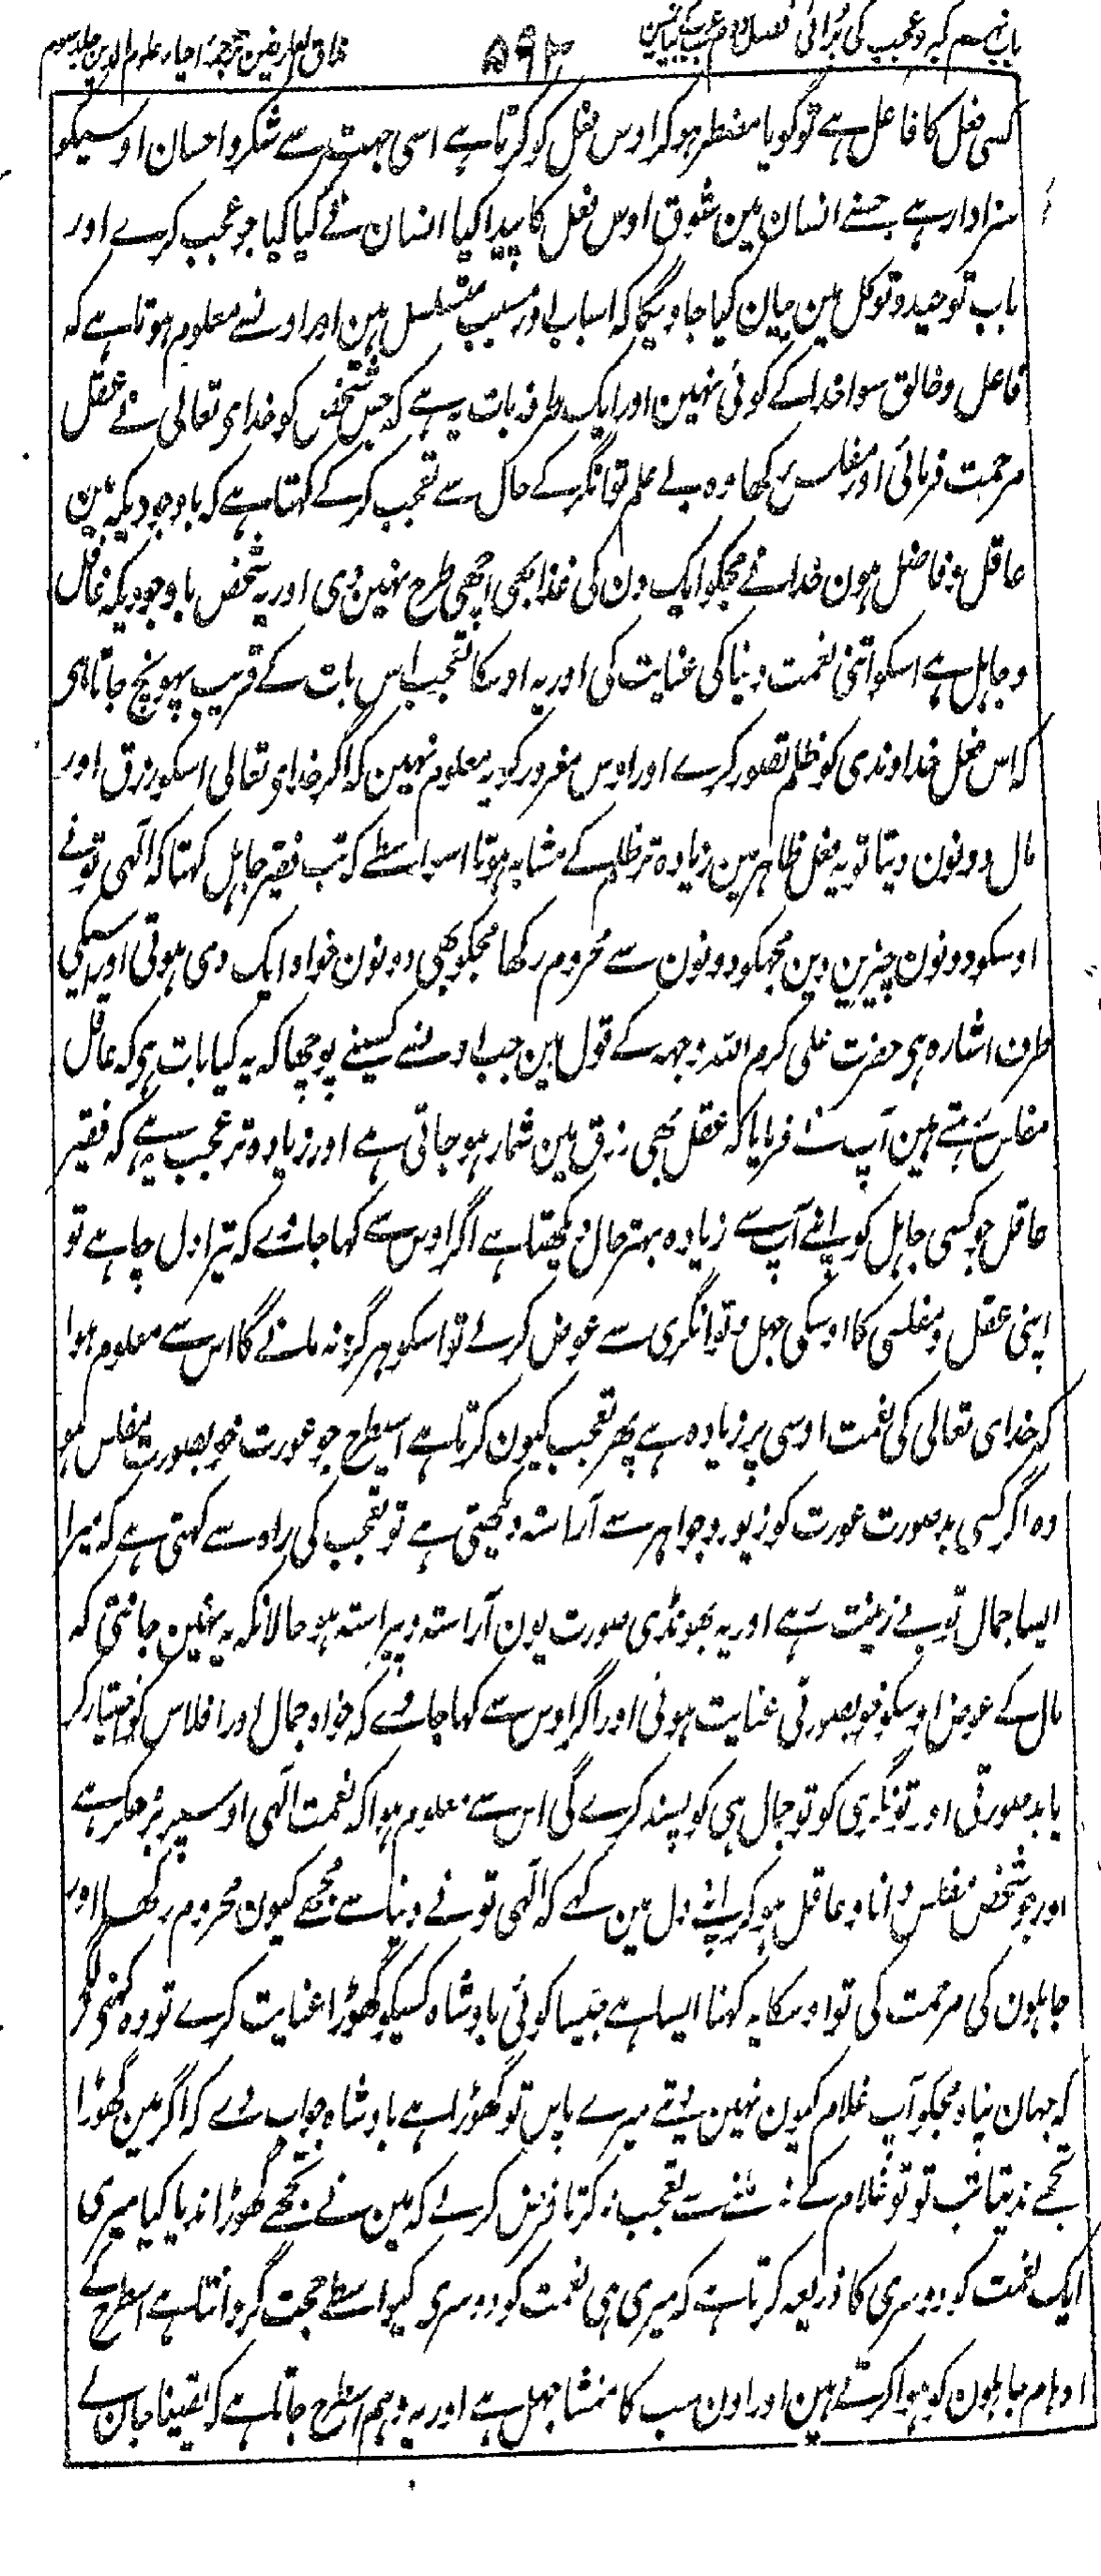 باب نہم کبر و عجب کی برائی فصل دوم عجب کے بیان مین
۵۹۲
مذاق العارفین ترجمۂ احیاء علوم الدین جلد سوم
کسی فعل کا فاعل ہے تو گویا مضطر ہوکر اوس فعل کو کرتا ہے اسی جہت سے شکر و احسان اوسیکو
سزاوار ہے جسنے انسان مین شوق اوس فعل کا پیدا کیا انسان نے کیا کیا جو عجب کرے اور
باب توحید و توکل مین بیان کیا جاویگا کہ اسباب اور مسبب متسلسل ہین اور اونسے معلوم ہوتا ہے کہ
فاعل و خالق سوا خدا کے کوئی نہین اور ایک طرفہ بات یہ ہے کہ جس شخص کو خدای تعالی نے عقل
مرحمت فرمائی اور مفلس رکھا وہ بے علم توانگر کے حال سے تعجب کرکے کہتا ہے کہ باوجودیکہ مین
عاقل و فاضل ہون خدا نے مجکو ایک دن کی غذا بھی اچھی طرح نہین دی اور یہ شخص باوجودیکہ غافل
و جاہل ہے اسکو اتنی نعمت دنیا کی عنایت کی اور یہ اوسکا تعجب اس بات کے قریب پہونچ جاتا ہی
کہ اس فعل خداوندی کو ظلم تصور کرے اور اوس مغرور کو یہ معلوم نہین کہ اگر خدای تعالی اسکو رزق اور
مال دونون دیتا تو یہ فعل ظاہر مین زیادہ تر ظلم کے مشابہ ہوتا اسواسطے کہ تب فقیر جاہل کہتا کہ الٰہی تونے
اوسکو دونون چیزین دین مجھکو دونون سے محروم رکھا مجکو بھی دونون خواہ ایک دی ہوتی اور اسیکی
طرف اشارہ ہی حضرت علی کرم اللہ وجہہ کے قول مین جب اونسے کسینے پوچھا کہ یہ کیا بات ہی کہ عاقل
مفلس رہتے ہین آپ نے فرمایا کہ عقل بھی رزق مین شمار ہو جاتی ہے اور زیادہ تر عجب یہ ہے کہ فقیر
عاقل جو کسی جاہل کو اپنے آپ سے زیادہ بہتر حال دیکھتا ہے اگر اوس سے کہا جائے کہ تیرا دل چاہے تو
اپنی عقل و مفلسی کا اوسکی جہل و توانگری سے عوض کرلے تو اسکو ہرگز نہ مانے گا اس سے معلوم ہوا
کہ خدای تعالی کی نعمت اوسی پر زیادہ ہے پھر تعجب کیون کرتا ہے اسیطرح جو عورت خوبصورت مفلس ہو
وہ اگر کسی بدصورت عورت کو زیور و جواہر سے آراستہ دیکھتی ہے تو تعجب کی راہ سے کہتی ہے کہ میرا
ایسا جمال تو بے زینت رہے اور یہ بھونڈی صورت یون آراستہ و پیراستہ ہو حالانکہ یہ نہین جانتی کہ
مال کے عوض اوسکو خوبصورتی عنایت ہوئی اور اگر اوس سے کہا جائے کہ خواہ جمال اور افلاس کو اختیار کر
یا بدصورتی اور تونگری کو تو جمال ہی کو پسند کرے گی اس سے معلوم ہوا کہ نعمت الٰہی اوسپر بڑھکر ہے
اور جو شخص مفلس دانا و عاقل ہوکر اپنے دل مین کہے کہ الٰہی تونے دنیا سے مجھے کیون محروم رکھا اور
جاہلون کی مرحمت کی تو اوسکا یہ کہنا ایسا ہے جیسا کوئی بادشاہ کسیکو گھوڑا عنایت کرے تو وہ کہنے لگے
کہ جہان پناہ مجکو آپ غلام کیون نہین دیتے میرے پاس تو گھوڑا ہے بادشاہ جواب دے کہ اگر مین گھوڑا
تجھے ندیتا تب تو تو غلام کے نہ ملنے سے تعجب نہ کرتا فرض کرلے کہ مین نے تجھے گھوڑا ندیا کیا میری
ایک نعمت کو دوسری کا ذریعہ کرتا ہے کہ میری ہی نعمت کو دوسری کیواسطے حجت گردانتا ہے اسطرح کے
اوہام جاہلون کو ہوا کرتے ہین اور اون سب کا منشا جہل ہے اور یہ وہم اسطرح جاتا ہے کہ یقینا جان لے